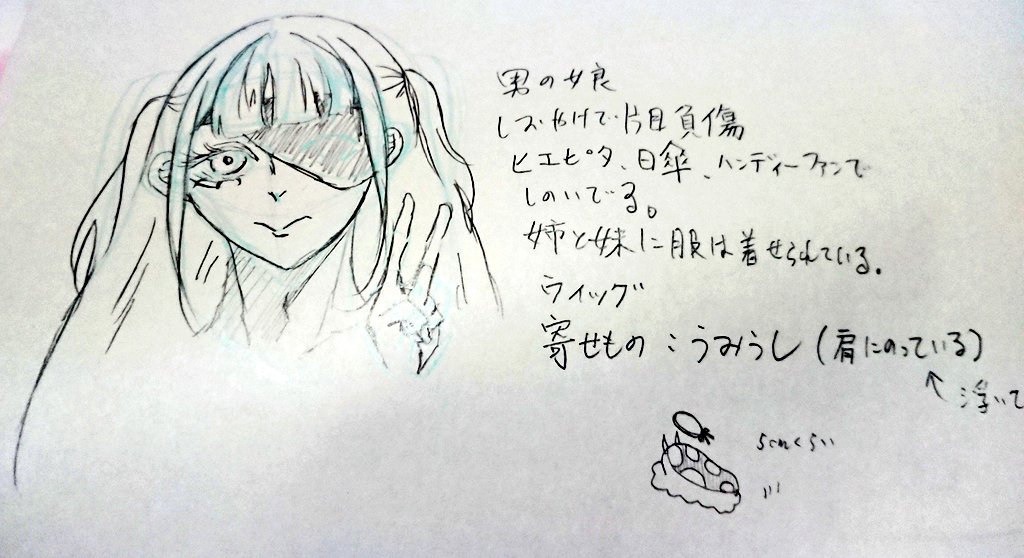 男の娘
しズやけで片目負傷
ヒエピタ、日傘、ハンディーファンで
しのいでる。
姉と妹に服は着せられている。
ウィッグ
寄せもの:うみうし(肩にのっている)
↑浮いて
5cmくらい